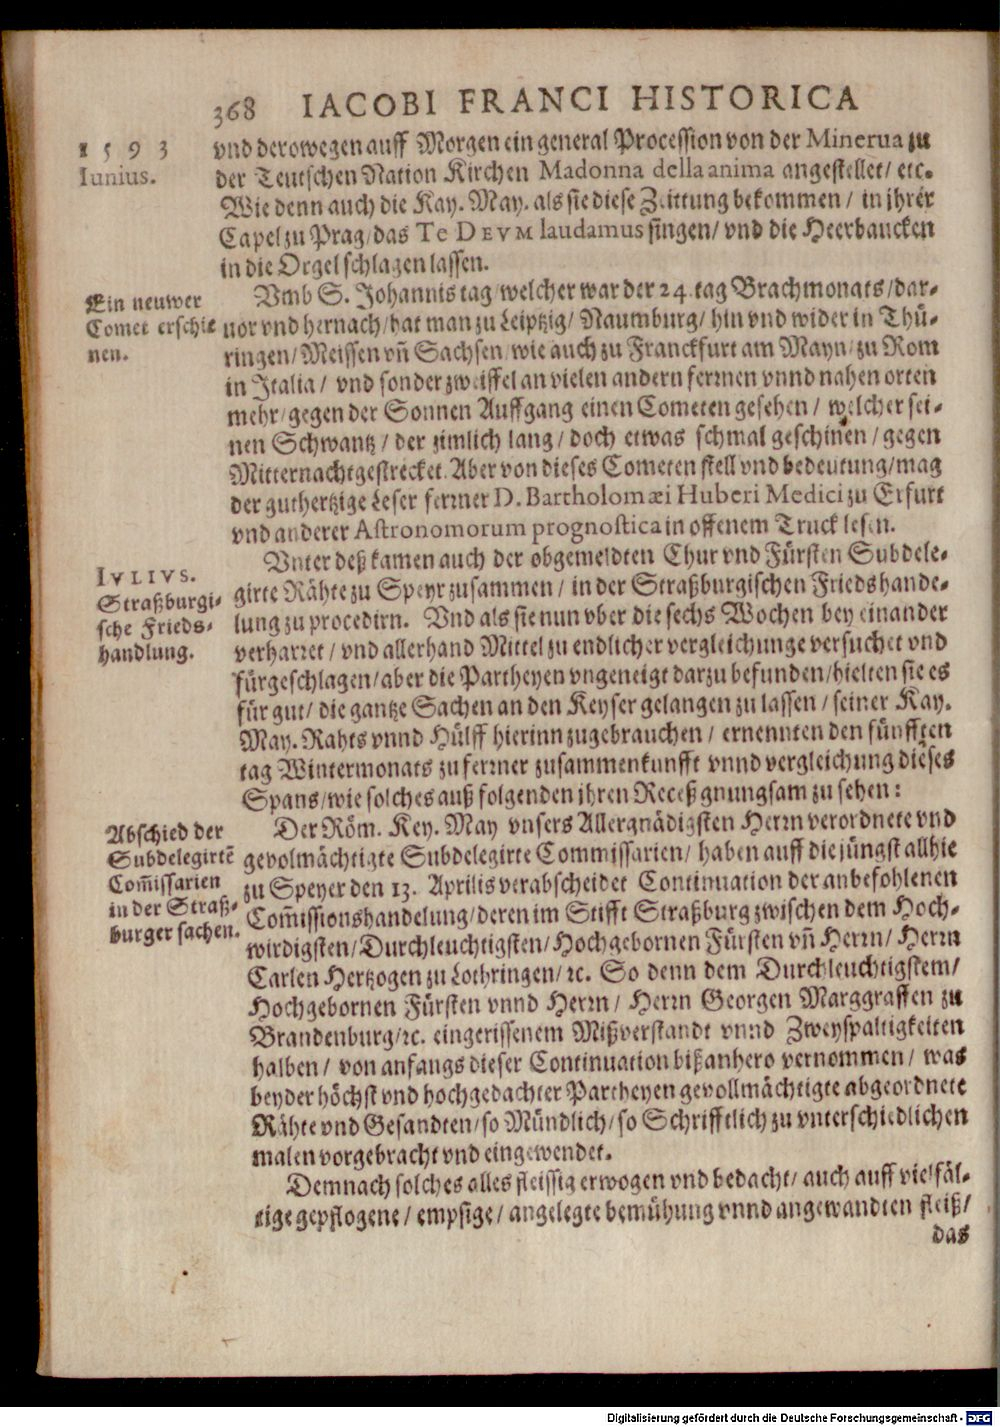 368 IACOBI FRANCI HISTORICA
1593
Iunius.
vnd derowegen auff Morgen ein general Procession von der Minerua zu
der Teutschen Nation Kirchen Madonna della anima angestellet/ etc.
Wie denn auch die Kay. May. als sie diese Zeittung bekommen / in jhrer
Capel zu Prag/ das Te DEVM laudamus singen/ vnd die Heerbaucken
in die Orgel schlagen lassen.
Ein neuwer
Comet erschie
nen.
Vmb S. Johannis tag/ welcher war der 24. tag Brachmonats/ dar-
uor vnd hernach/ hat man zu Leiptzig/ Naumburg/ hin vnd wider in Thü-
ringen/ Meissen vñ Sachsen/ wie auch zu Franckfurt am Mayn/ zu Rom
in Italia / vnd sonder zweiffel an vielen andern ferrnen vnnd nahen orten
mehr/ gegen der Sonnen Auffgang einen Cometen gesehen / welcher sei-
nen Schwantz / der zimlich lang / doch etwas schmal geschinen / gegen
Mitternacht gestrecket. Aber von dieses Cometen stell vnd bedeutung/ mag
der guthertzige Leser ferrner D. Bartholomæi Huberi Medici zu Erfurt
vnd anderer Astronomorum prognostica in offenem Truck lesen.
IVLIVS.
Straßburgi-
sche Frieds-
handlung.
Vnter deß kamen auch der obgemeldten Chur vnd Fürsten Subdele-
girte Rähte zu Speyr zusammen / in der Straßburgischen Friedshande-
lung zu procedirn. Vnd als sie nun vber die sechs Wochen bey einander
verharret / vnd allerhand Mittel zu endlicher vergleichunge versuchet vnd
fürgeschlagen/ aber die Partheyen vngeneigt darzu befunden/ hielten sie es
für gut/ die gantze Sachen an den Keyser gelangen zu lassen / seiner Kay.
May. Rahts vnnd Hülff hierinn zugebrauchen / ernennten den fünfften
tag Wintermonats zu ferrner zusammenkunfft vnnd vergleichung dieses
Spans/ wie solches auß folgenden ihren Receß gnungsam zu sehen:
Abschied der
Subdelegirtē
Com̄issarien
in der Straß-
burger sachen.
Der Röm. Key. May vnsers Allergnädigsten Herrn verordnete vnd
gevolmächtigte Subdelegirte Commissarien / haben auff die jüngst allhie
zu Speyer den 13. Aprilis verabscheidet Continuation der anbefohlenen
Com̄issionshandelung/ deren im Stifft Straßburg zwischen dem Hoch-
wirdigsten/ Durchleuchtigsten/ Hochgebornen Fürsten vñ Herrn/ Herrn
Carlen Hertzogen zu Lothringen/ ꝛc. So denn dem Durchleuchtigstem/
Hochgebornen Fürsten vnnd Herrn/ Herrn Georgen Marggraffen zu
Brandenburg/ ꝛc. eingerissenem Mißverstandt vnnd Zweyspaltigkeiten
halben / von anfangs dieser Continuation biß anhero vernommen / was
beyder höchst vnd hochgedachter Partheyen gevollmächtigte abgeordnete
Rähte vnd Gesandten/ so Mündlich/ so Schrifftlich zu vnterschiedlichen
malen vorgebracht vnd eingewendet.
Demnach solches alles fleissig erwogen vnd bedacht/ auch auff vielfäl-
tige gepflogene / empsige / angelegte bemühung vnnd angewandten fleiß/
das
Digitalisierung gefördert durch die Deutsche Forschungsgemeinschaft - DFG